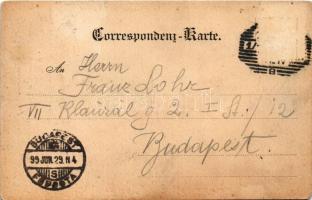 Correspondenz-Karte.
An Herrn
Franz Lohr
VII Klauzál g. 2 I St. / 12
Budapest.
BUDAPEST
99 JUN. 29. N 4
S